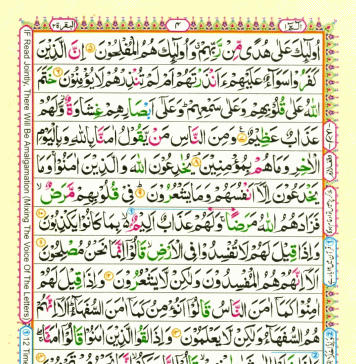 البقرة ٢
٤
الٓمّٓ ١
اُولٰٓئِكَ عَلٰى هُدًى مِّنْ رَّبِّهِمْ وَاُولٰٓئِكَ هُمُ الْمُفْلِحُوْنَ ۝ اِنَّ الَّذِيْنَ
كَفَرُوْا سَوَآءٌ عَلَيْهِمْ ءَاَنْذَرْتَهُمْ اَمْ لَمْ تُنْذِرْهُمْ لَا يُؤْمِنُوْنَ ۝ خَتَمَ
اللّٰهُ عَلٰى قُلُوْبِهِمْ وَعَلٰى سَمْعِهِمْ وَعَلٰٓى اَبْصَارِهِمْ غِشَاوَةٌ وَّلَهُمْ
عَذَابٌ عَظِيْمٌ ۝ وَمِنَ النَّاسِ مَنْ يَّقُوْلُ اٰمَنَّا بِاللّٰهِ وَبِالْيَوْمِ
الْاٰخِرِ وَمَا هُمْ بِمُؤْمِنِيْنَ ۝ يُخٰدِعُوْنَ اللّٰهَ وَالَّذِيْنَ اٰمَنُوْا وَمَا
يَخْدَعُوْنَ اِلَّآ اَنْفُسَهُمْ وَمَا يَشْعُرُوْنَ ۝ فِيْ قُلُوْبِهِمْ مَّرَضٌ
فَزَادَهُمُ اللّٰهُ مَرَضًا وَلَهُمْ عَذَابٌ اَلِيْمٌ بِمَا كَانُوْا يَكْذِبُوْنَ ۝
وَاِذَا قِيْلَ لَهُمْ لَا تُفْسِدُوْا فِي الْاَرْضِ قَالُوْٓا اِنَّمَا نَحْنُ مُصْلِحُوْنَ ۝
اَلَآ اِنَّهُمْ هُمُ الْمُفْسِدُوْنَ وَلٰكِنْ لَّا يَشْعُرُوْنَ ۝ وَاِذَا قِيْلَ لَهُمْ
اٰمِنُوْا كَمَآ اٰمَنَ النَّاسُ قَالُوْٓا اَنُؤْمِنُ كَمَآ اٰمَنَ السُّفَهَآءُ اَلَآ اِنَّهُمْ
هُمُ السُّفَهَآءُ وَلٰكِنْ لَّا يَعْلَمُوْنَ ۝ وَاِذَا لَقُوا الَّذِيْنَ اٰمَنُوْا قَالُوْٓا اٰمَنَّا
IF Read Jointly, There Will Be Amalgamation (Mixing The Voice Of The Letters)